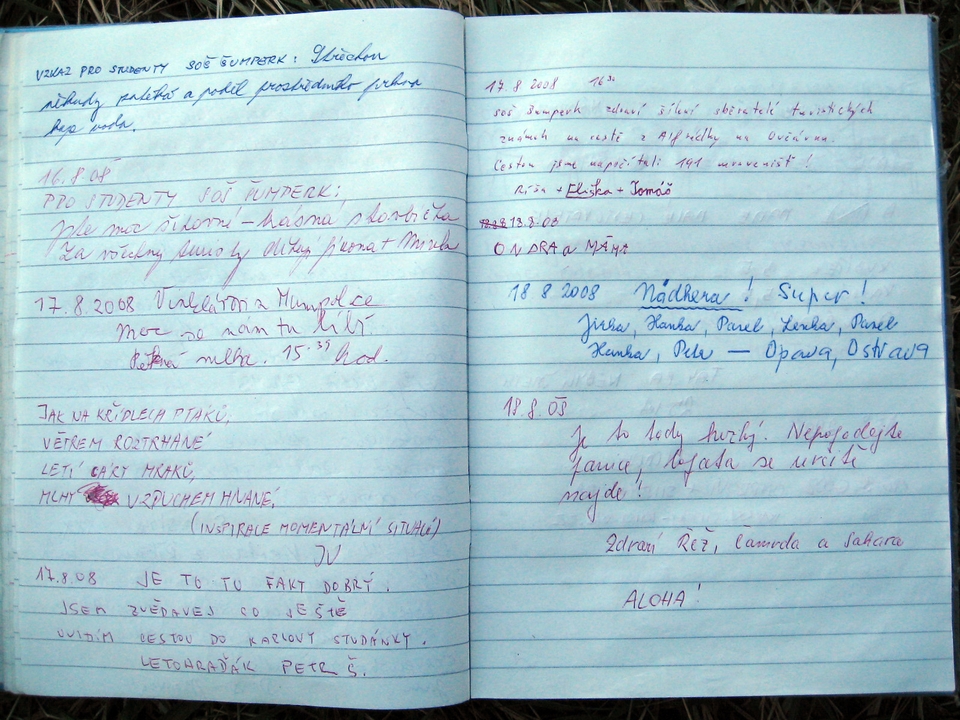 VZKAZ PRO STUDENTY SOŠ ŠUMPERK:
někudy a podél prostředního
bez vody.
16.8.08
PRO STUDENTY SOŠ ŠUMPERK:,
jste moc šikovní – krásná
Za všechny turisty děkují +
17.8.2008 z Humpolce
Moc se nám tu líbí
Pěkná 15.39 hod.
JAK NA KŘÍDLECH PTÁKŮ,
VĚTREM ROZTRHANÉ
LETÍ CÁRY MRAKŮ,
MLHY VZDUCHEM HNANÉ,
(INSPIRACE MOMENTÁLNÍ SITUACÍ)
JV
17.8.08 JE TO TU FAKT DOBRÝ.
JSEM ZVĚDAVEJ CO JEŠTĚ
UVIDÍM CESTOU DO KARLOVY STUDÁNKY.
LETOHRAĎÁK PETR Š.
17.8 2008 16 30
SOŠ Šumperk zdraví šílení sběratelé turistických
známek na cestě z Alfrédky na Ovčárnu.
Cestou jsme napočítali 191 mravenišť!
Ríša + Eliška + Tomáš
18.8.08
ONDRA a MÁMA
18 8 2008 Nádhera! Super!
Jirka, Hanka, Pavel, Lenka, Pavel
Hanka, Petr — Opava, Ostrava
18.8.08
Je to tady hezký. Nepropadejte
panice, bojata se určitě
najde!
Zdraví Řež, Čamrda a Sahara
ALOHA!